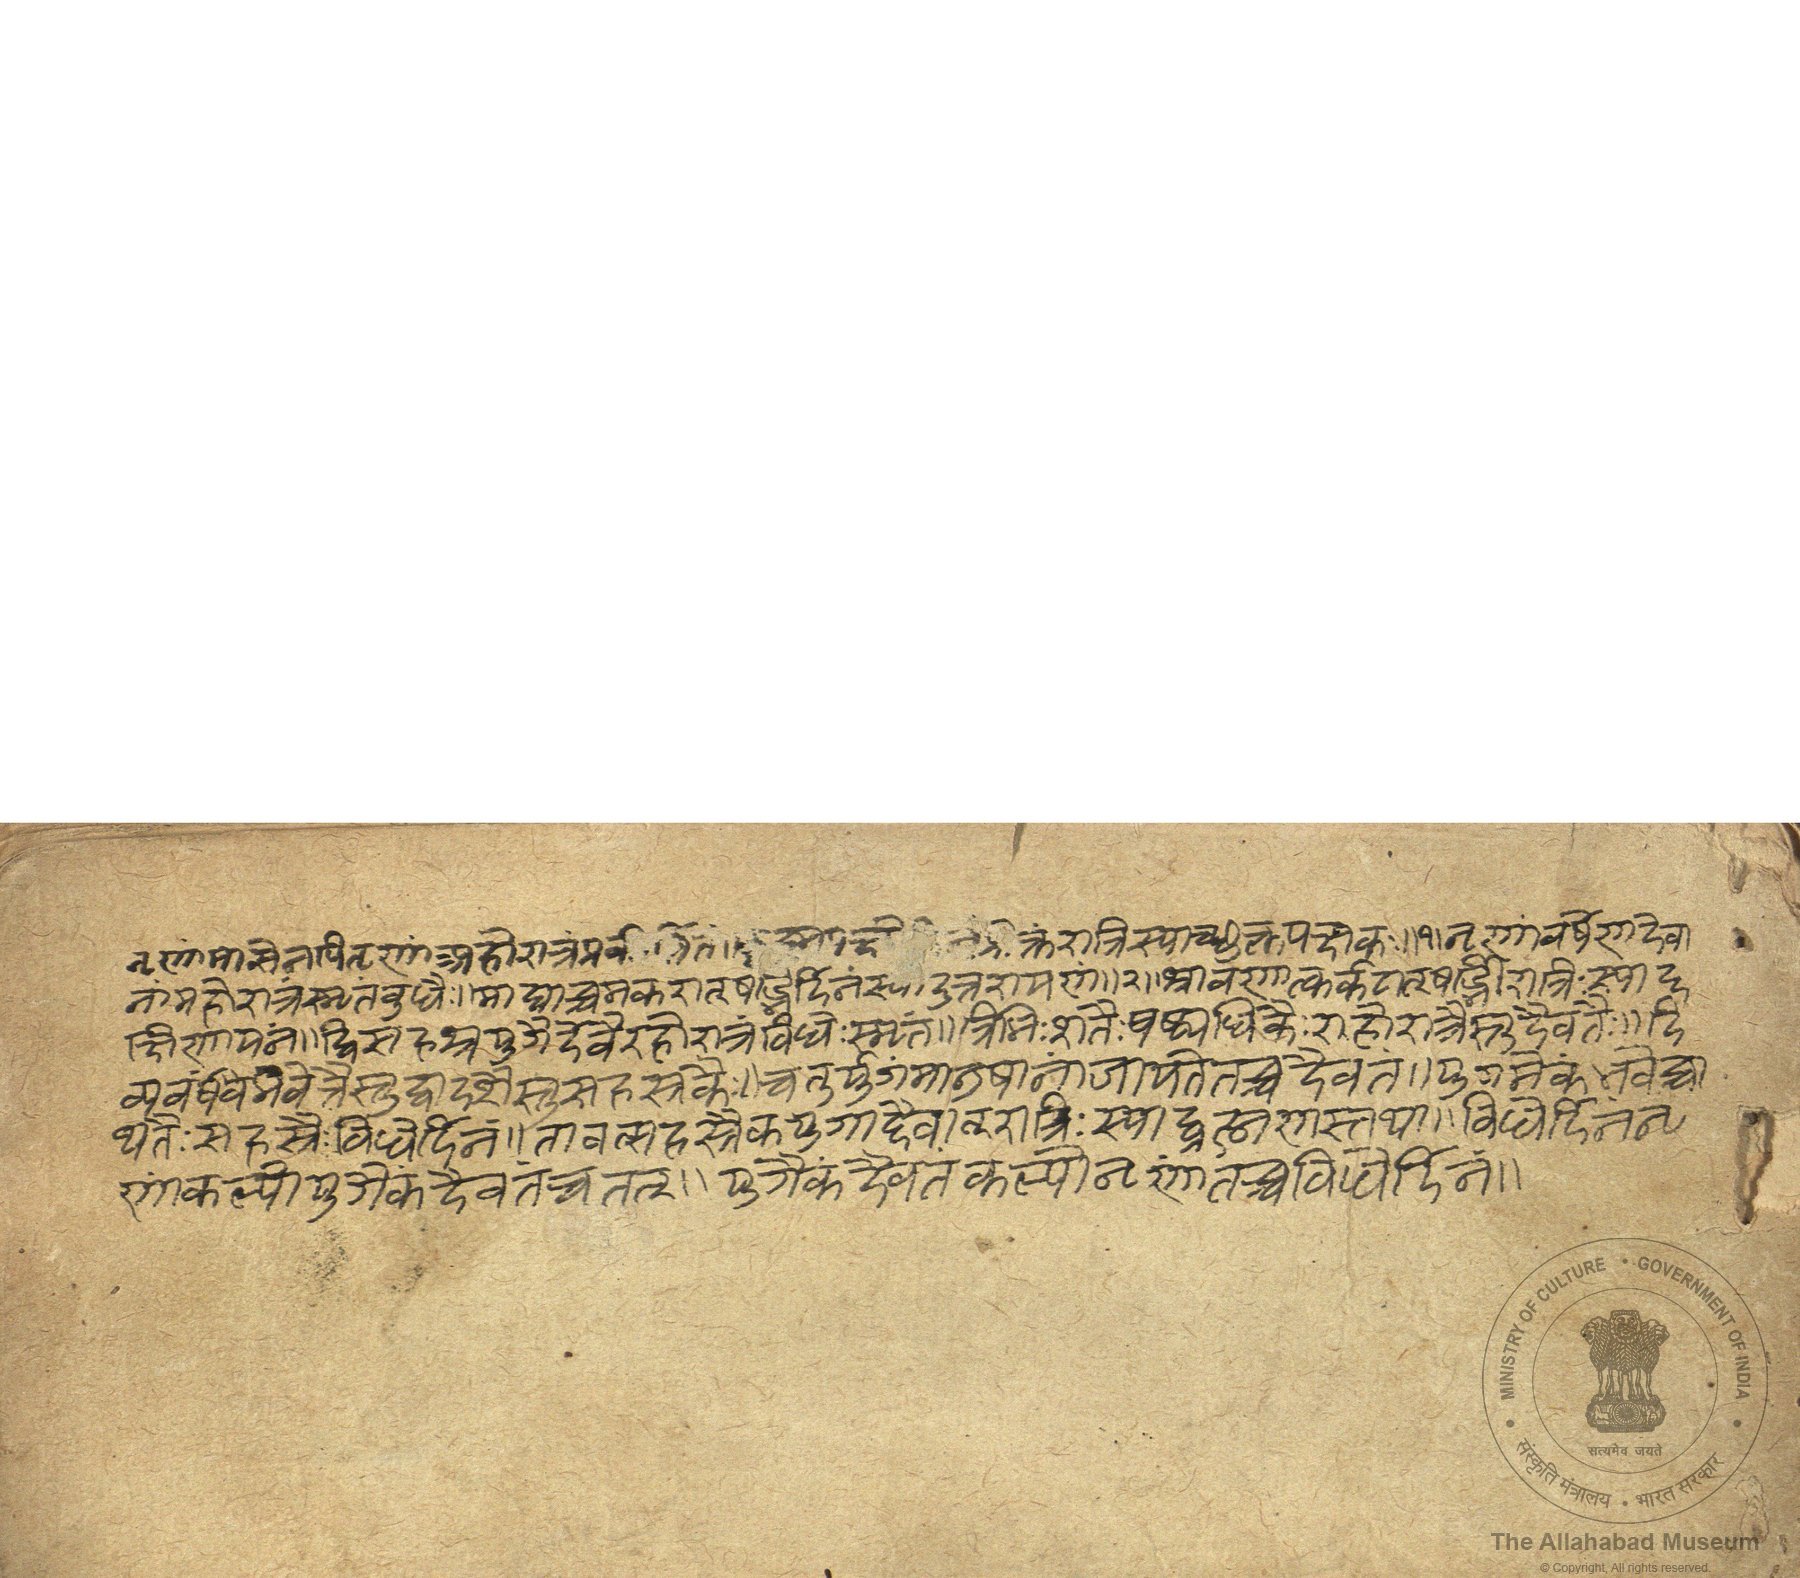 नृणांमासेनपितृणांअहोरात्रंप्रकी रात्रिस्याच्छुक्लपक्षकः॥१॥नृणांवर्षेणदेवा
नांमहोरात्रंस्मृतंबुधैः॥माघाच्चमकरात्षड्भिर्दिनंस्यादुत्तरायणं॥२॥श्रावणात्कर्कटात्षड्भीरात्रिःस्याद्द
क्षिणायनं॥द्विसहस्रयुगैर्देवैरहोरात्रंविधेःस्मृतं॥त्रिभिःशतैःषष्ट्यधिकैःरहोरात्रैस्तुदैवतैः॥दि
द्वादशैस्तुसहस्रकैः॥चतुर्युगंमानुषानांजायतेतच्चदैवतं॥युगमेकं
सहस्रैःविधेर्दिनं॥तावत्सहस्रैकयुगाद्दैवात्रात्रिःस्याद्ब्रह्मणस्तथा॥विधेर्दिनंनृ
णांकल्पौयुगैकंदैवतंचतत्॥युगैकंदैवतंकल्पौनृणांतच्चविधेर्दिनं॥
MINISTRY OF CULTURE • GOVERNMENT OF INDIA
सत्यमेव जयते
संस्कृति मंत्रालय • भारत सरकार
The Allahabad Museum
© Copyright, All rights reserved.